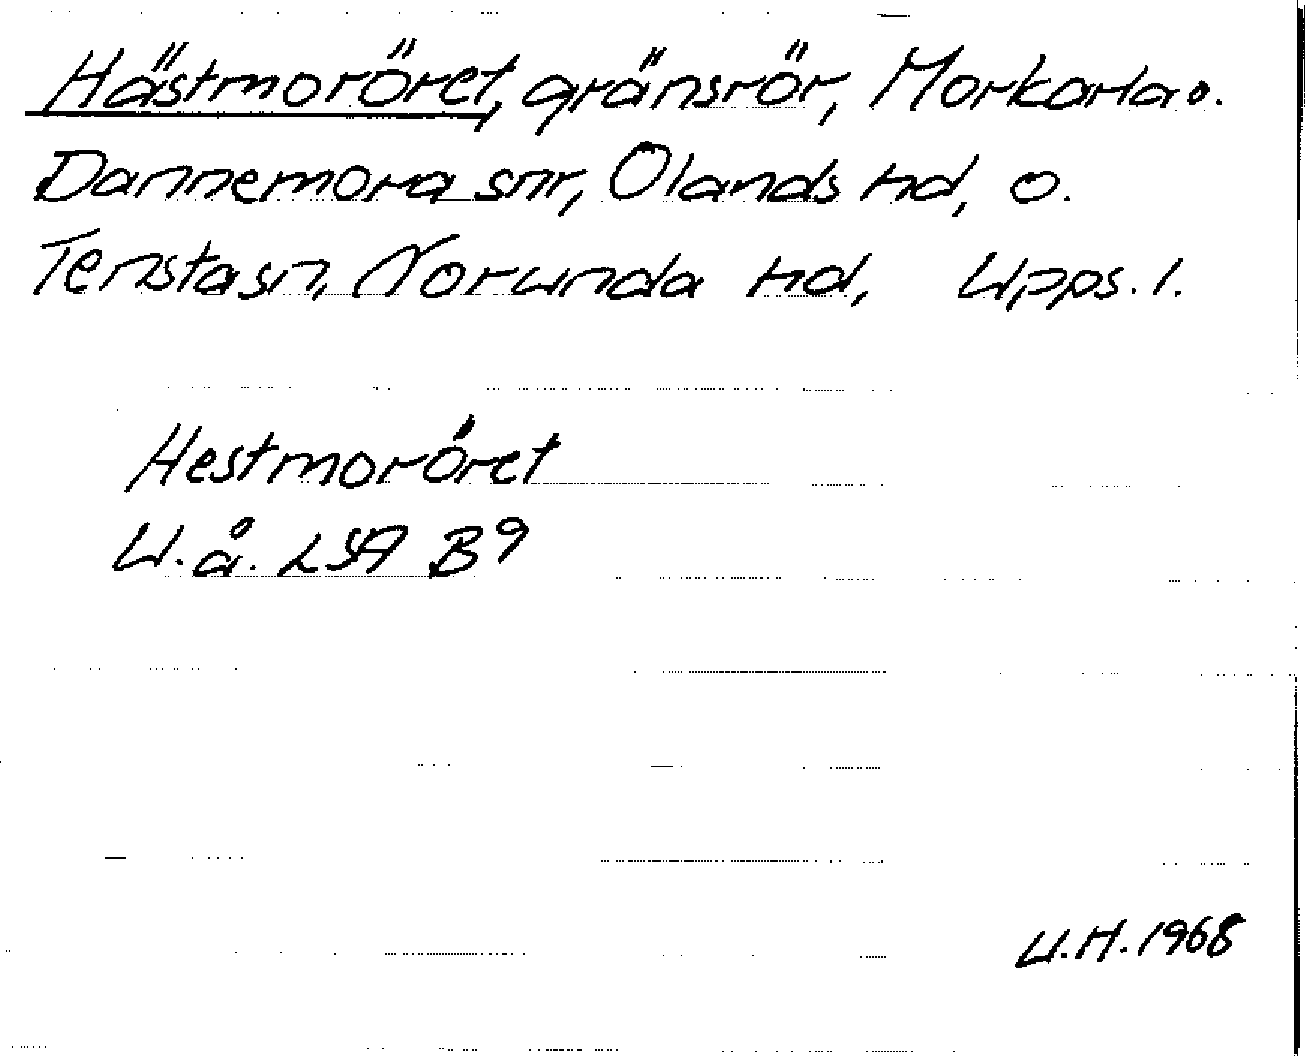 Hästmoröret, gränsrör, Morkarla o.
Dannemora snr, Olands hd, o.
Tenstasn, Norunda hd, Upps. l.
Hestmoröret
U.å. LSA B9
U.H. 1968